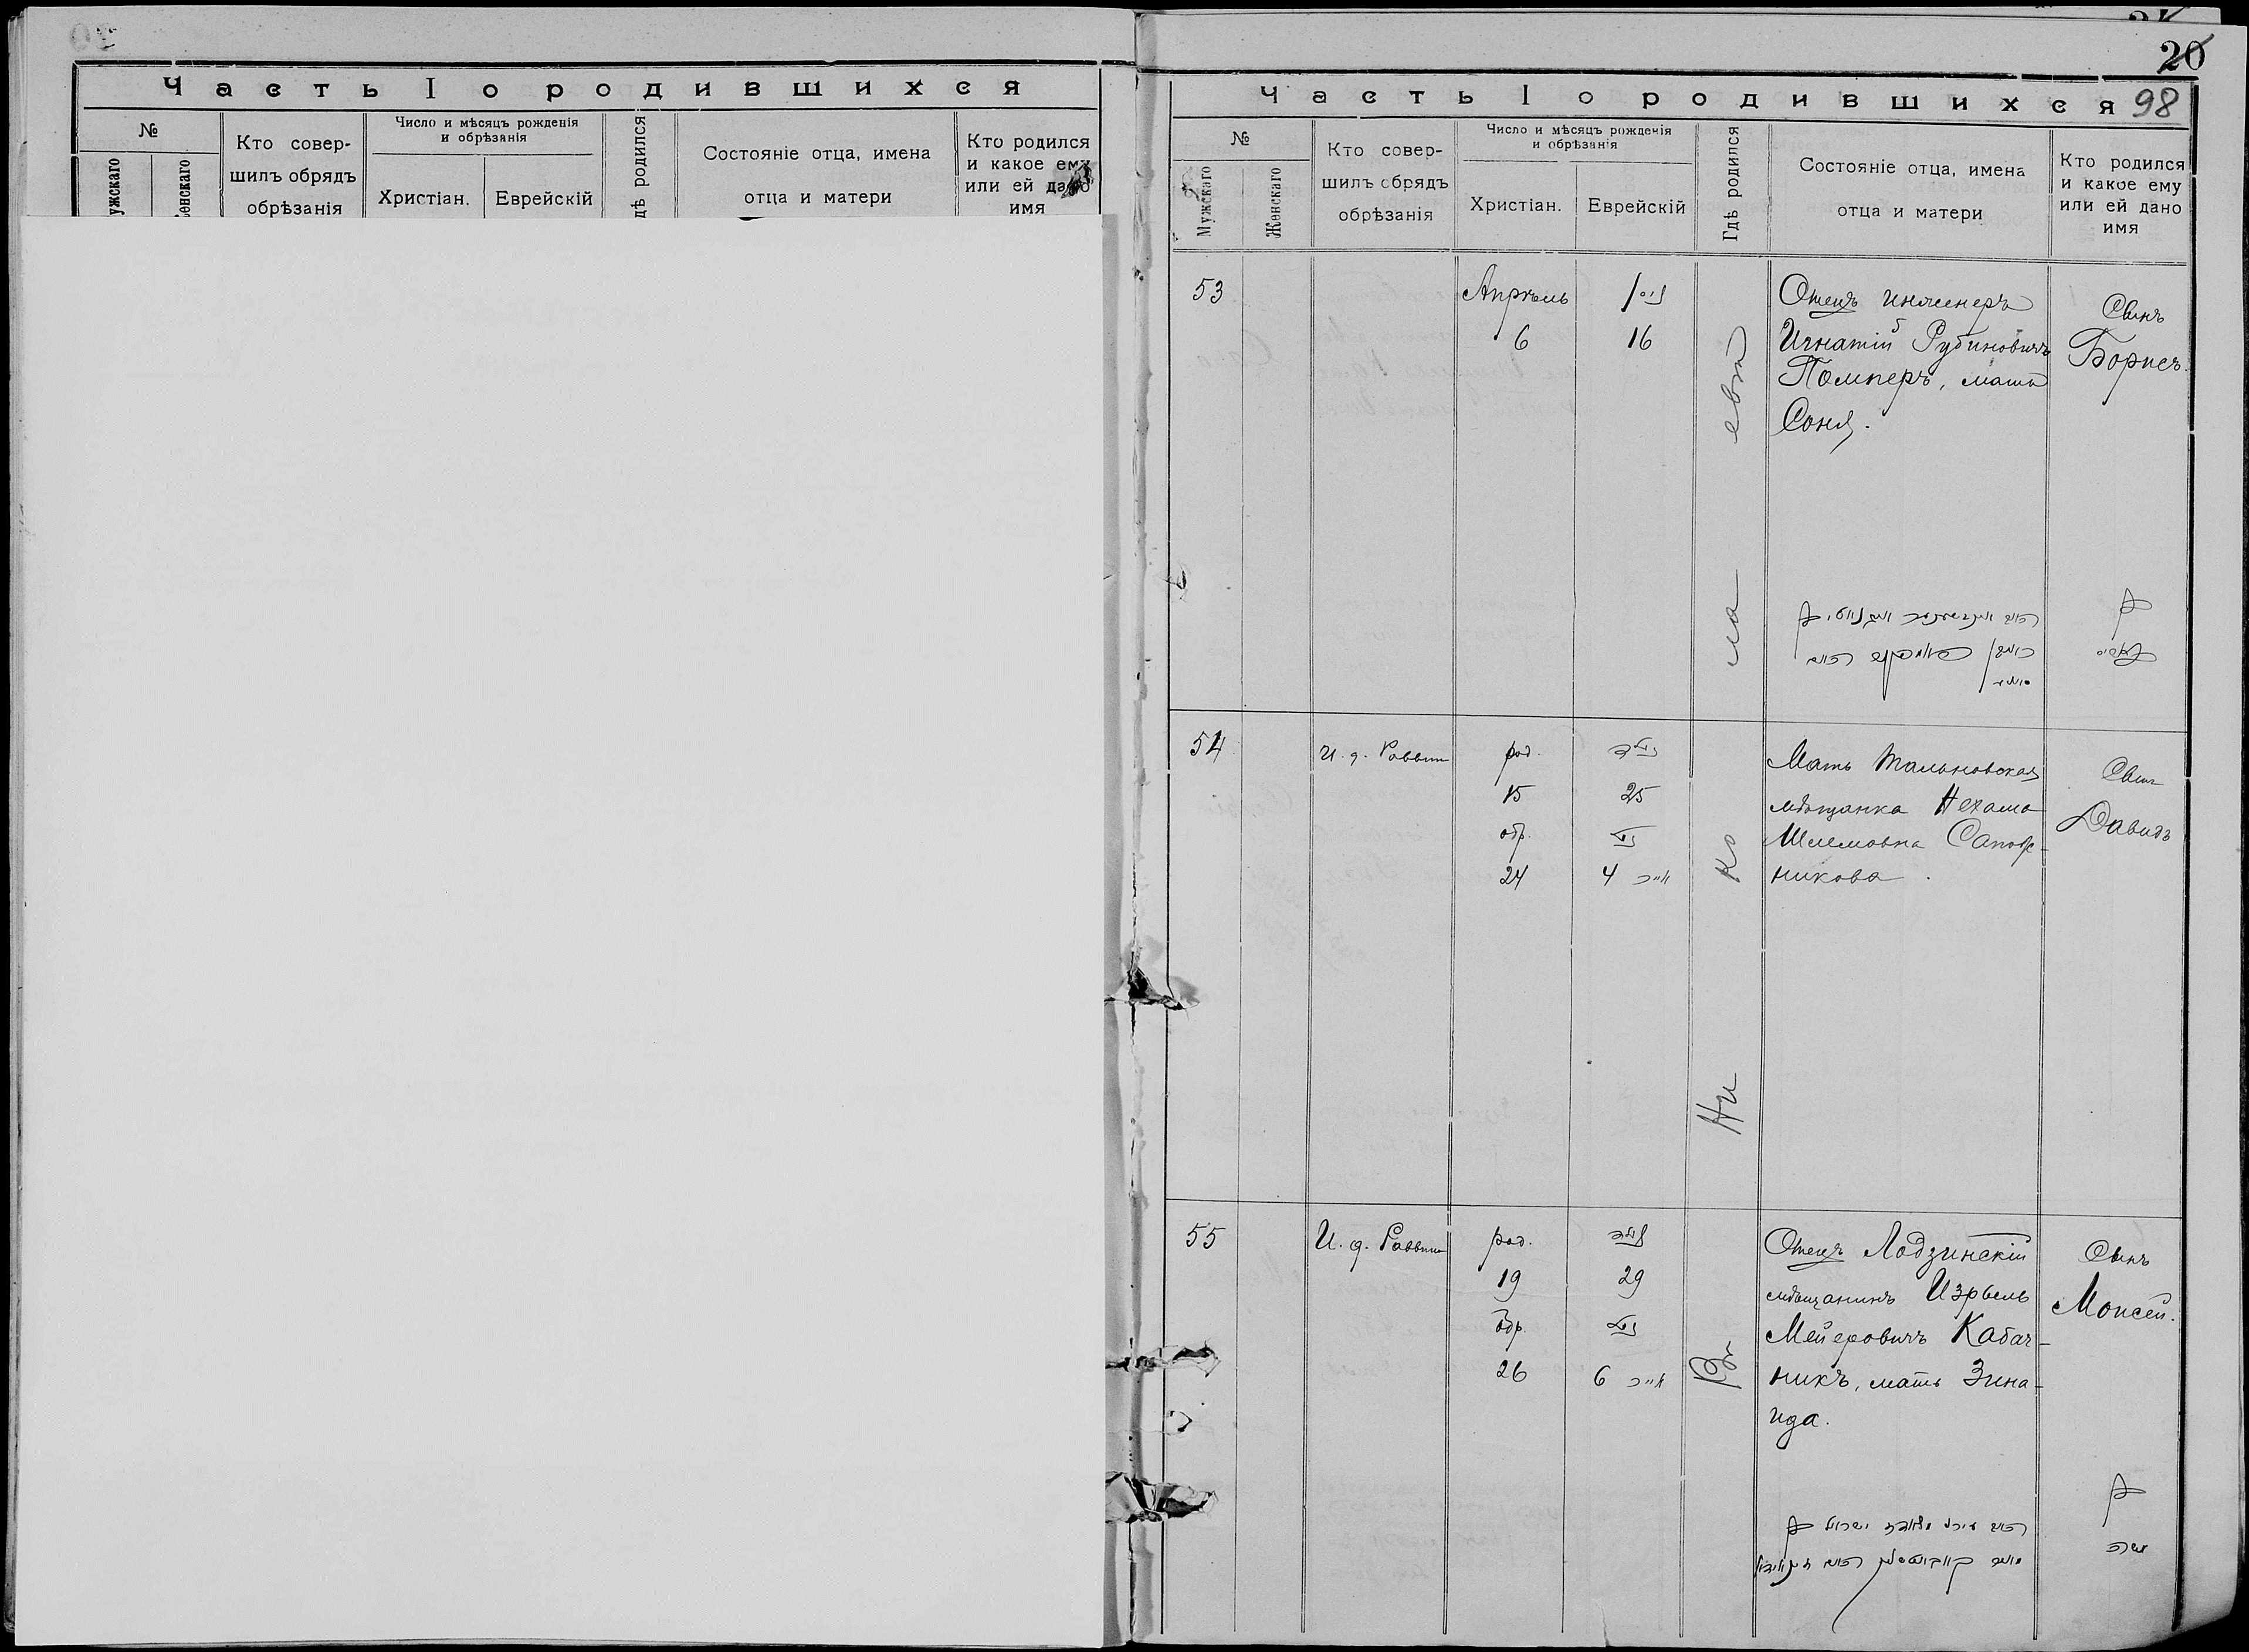 Часть I о родившихся
№
Мужскаго
Женскаго
Кто совер-
шилъ обрядъ
обрѣзанія
Число и мѣсяцъ рожденія
и обрѣзанія
Христіан.
Еврейскій
Гдѣ родился
Состояніе отца, имена
отца и матери
Кто родился
и какое ему
или ей дано
имя
20
98
Часть I о родившихся
№
Мужскаго
Женскаго
Кто совер-
шилъ обрядъ
обрѣзанія
Число и мѣсяцъ рожденія
и обрѣзанія
Христіан.
Еврейскій
Гдѣ родился
Состояніе отца, имена
отца и матери
Кто родился
и какое ему
или ей дано
имя
Въ Николаевѣ
53
Апрѣль
6
ניסן
16
Отецъ инженеръ
Игнатій Рубиновичъ
Помперъ, мать
Соня.
Сынъ
Борисъ.
54
И. д. Раввин
род.
15
обр.
24
נולד
25
נימול
4 אייר
Мать Тальновская
мѣщанка Нехама
Шлемовна Сапож-
никова.
Сынъ
Давидъ
55
И. д. Раввин
род.
19
обр.
26
נולד
29
נימול
6 אייר
Отецъ Лодзинскій
мѣщанинъ Израель
Мейеровичъ Кабач-
никъ, мать Зина-
ида.
Сынъ
Моисей.
משה